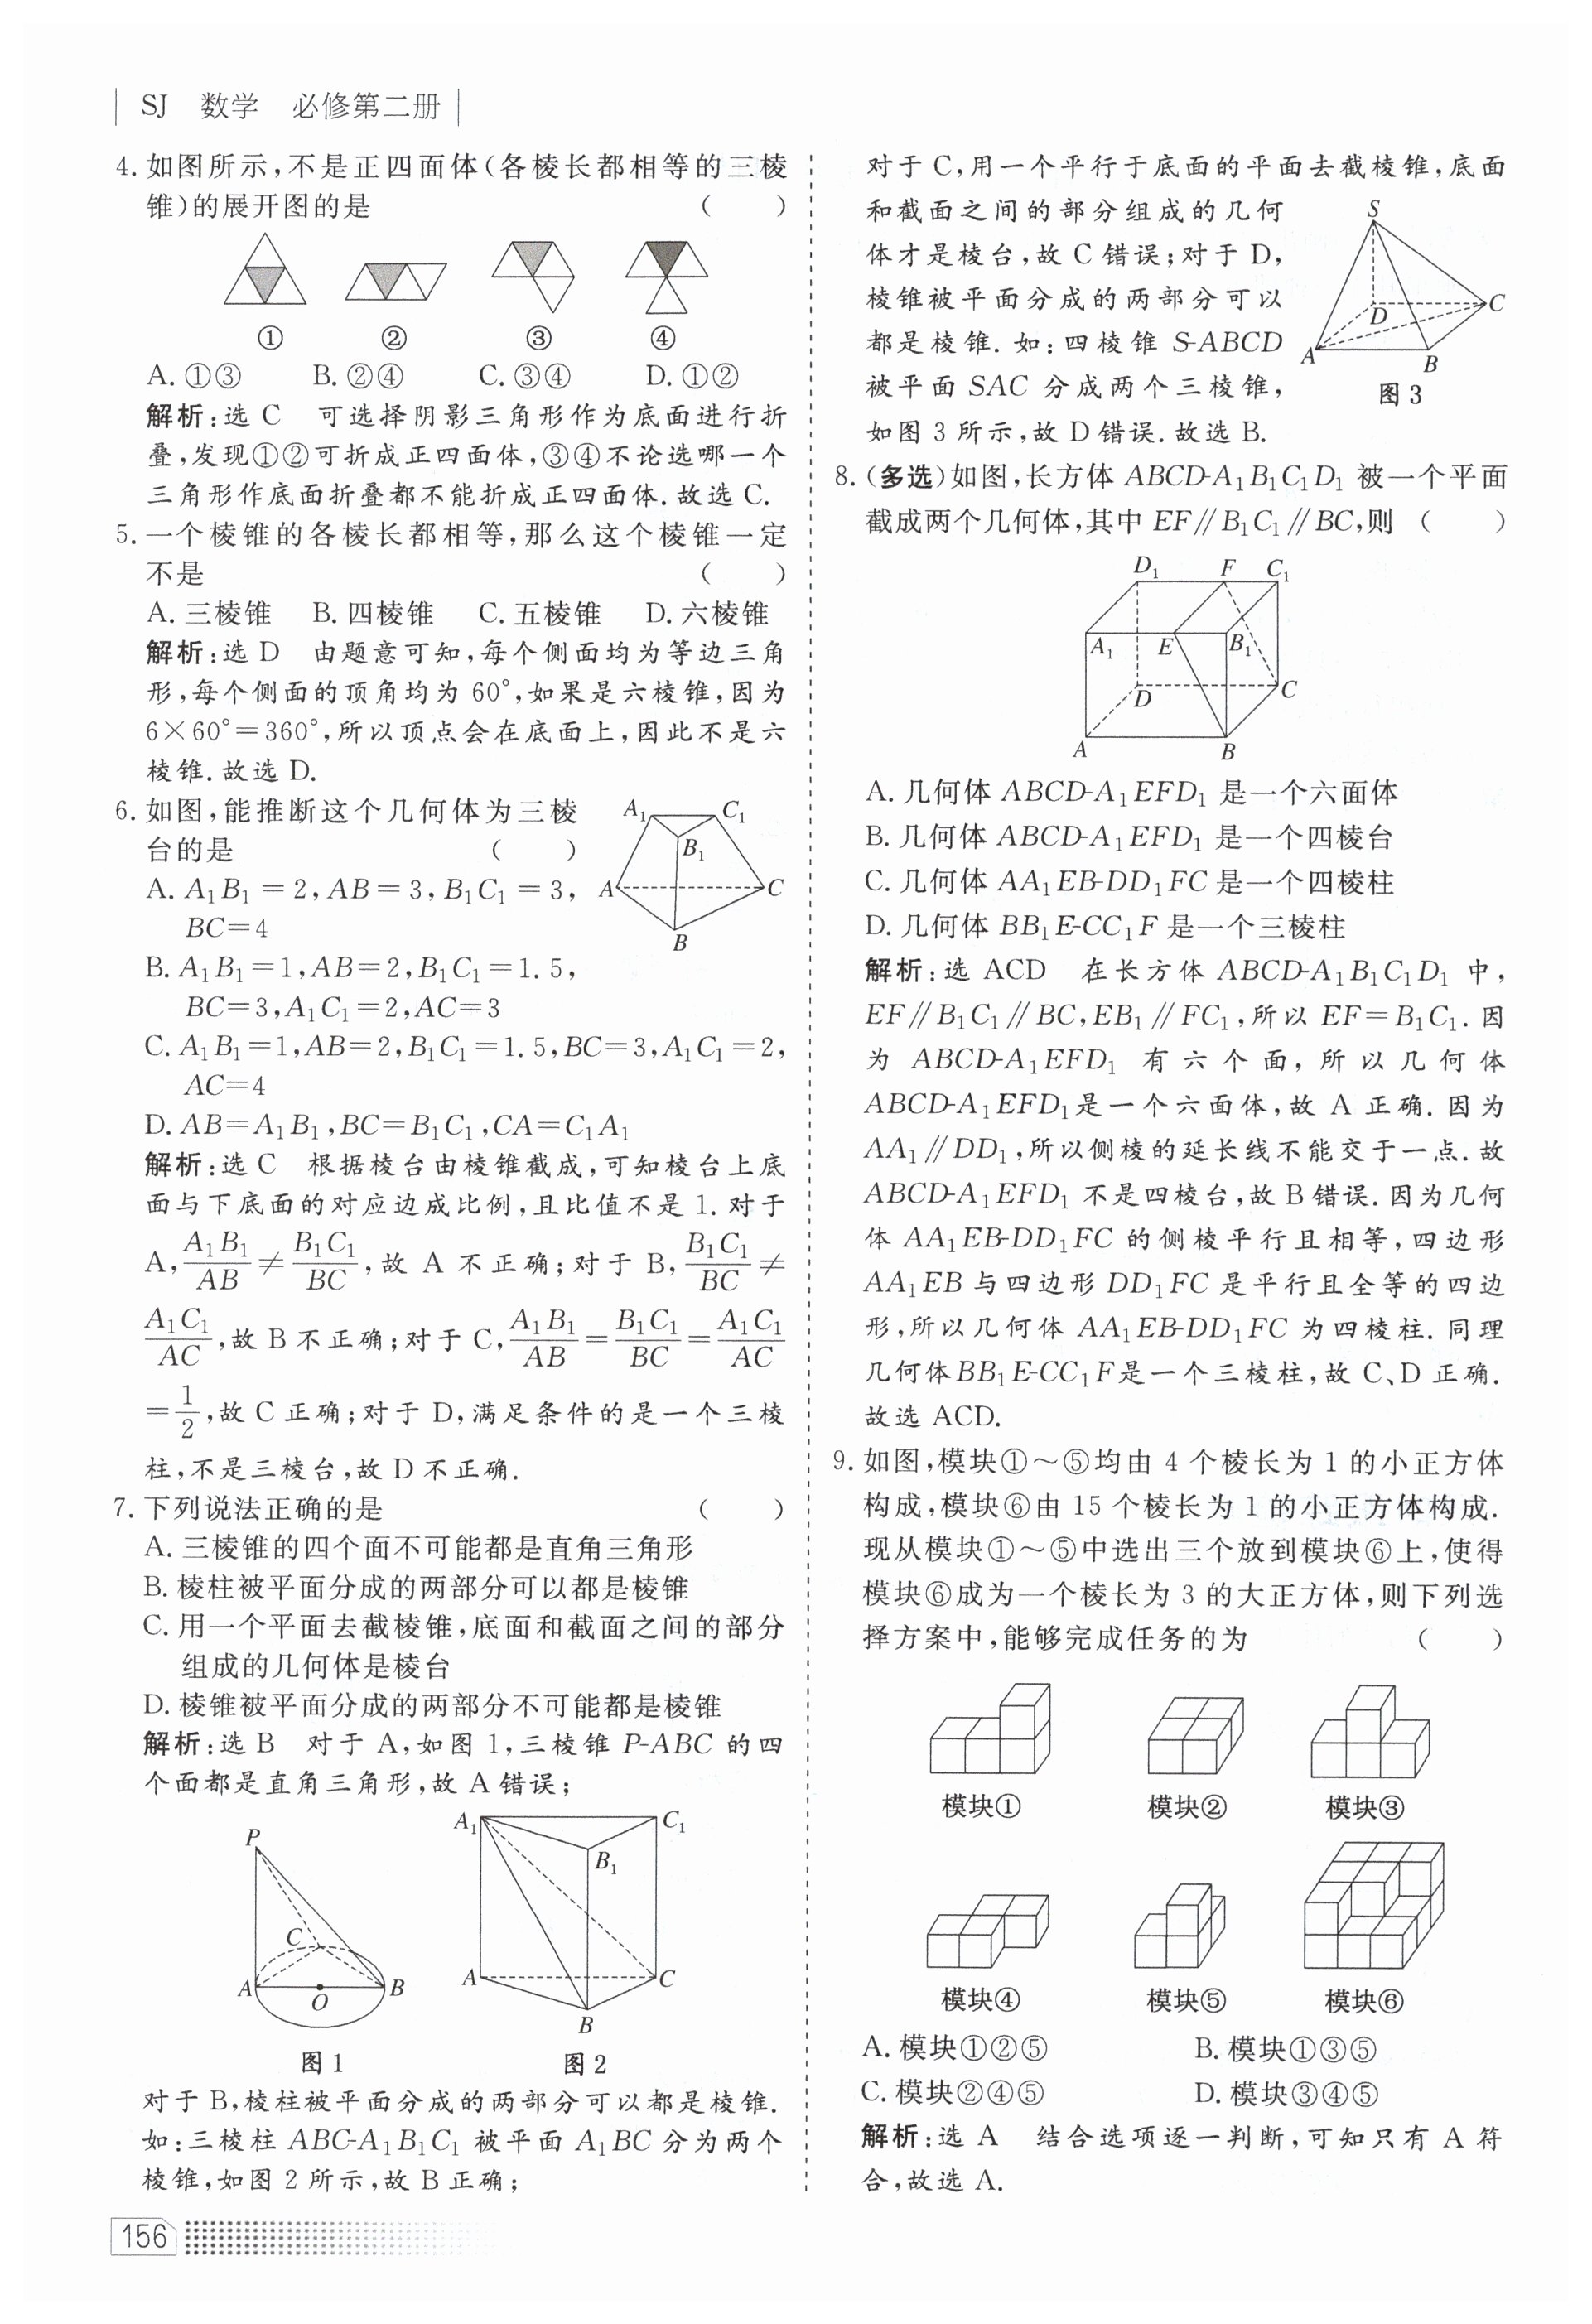 SJ 数学 必修第二册
4. 如图所示,不是正四面体(各棱长都相等的三棱
锥)的展开图的是 ( )
① ② ③ ④
A. ①③ B. ②④ C. ③④ D. ①②
解析:选 C 可选择阴影三角形作为底面进行折
叠,发现①②可折成正四面体,③④不论选哪一个
三角形作底面折叠都不能折成正四面体. 故选 C.
5. 一个棱锥的各棱长都相等,那么这个棱锥一定
不是 ( )
A. 三棱锥 B. 四棱锥 C. 五棱锥 D. 六棱锥
解析:选 D 由题意可知,每个侧面均为等边三角
形,每个侧面的顶角均为 60°,如果是六棱锥,因为
6×60°=360°,所以顶点会在底面上,因此不是六
棱锥. 故选 D.
6. 如图,能推断这个几何体为三棱
台的是 ( )
A. A₁B₁=2,AB=3,B₁C₁=3,
BC=4
B. A₁B₁=1,AB=2,B₁C₁=1.5,
BC=3,A₁C₁=2,AC=3
A₁ C₁
B₁
A C
B
C. A₁B₁=1,AB=2,B₁C₁=1.5,BC=3,A₁C₁=2,
AC=4
D. AB=A₁B₁,BC=B₁C₁,CA=C₁A₁
解析:选 C 根据棱台由棱锥截成,可知棱台上底
面与下底面的对应边成比例,且比值不是 1. 对于
A, A₁B₁/AB ≠ B₁C₁/BC ,故 A 不正确;对于 B, B₁C₁/BC ≠
A₁C₁/AC ,故 B 不正确;对于 C, A₁B₁/AB = B₁C₁/BC = A₁C₁/AC
= 1/2 ,故 C 正确;对于 D,满足条件的是一个三棱
柱,不是三棱台,故 D 不正确.
7. 下列说法正确的是 ( )
A. 三棱锥的四个面不可能都是直角三角形
B. 棱柱被平面分成的两部分可以都是棱锥
C. 用一个平面去截棱锥,底面和截面之间的部分
组成的几何体是棱台
D. 棱锥被平面分成的两部分不可能都是棱锥
解析:选 B 对于 A,如图 1,三棱锥 P-ABC 的四
个面都是直角三角形,故 A 错误;
P
C
A O B
图 1
A₁ C₁
B₁
A C
B
图 2
对于 B,棱柱被平面分成的两部分可以都是棱锥.
如:三棱柱 ABC-A₁B₁C₁ 被平面 A₁BC 分为两个
棱锥,如图 2 所示,故 B 正确;
156
对于 C,用一个平行于底面的平面去截棱锥,底面
和截面之间的部分组成的几何
体才是棱台,故 C 错误;对于 D,
棱锥被平面分成的两部分可以
都是棱锥. 如:四棱锥 S-ABCD
被平面 SAC 分成两个三棱锥,
如图 3 所示,故 D 错误. 故选 B.
S
D C
A B
图 3
8. (多选)如图,长方体 ABCD-A₁B₁C₁D₁ 被一个平面
截成两个几何体,其中 EF∥B₁C₁∥BC,则 ( )
D₁ F C₁
A₁ E B₁
D C
A B
A. 几何体 ABCD-A₁EFD₁ 是一个六面体
B. 几何体 ABCD-A₁EFD₁ 是一个四棱台
C. 几何体 AA₁EB-DD₁FC 是一个四棱柱
D. 几何体 BB₁E-CC₁F 是一个三棱柱
解析:选 ACD 在长方体 ABCD-A₁B₁C₁D₁ 中,
EF∥B₁C₁∥BC,EB₁∥FC₁,所以 EF=B₁C₁. 因
为 ABCD-A₁EFD₁ 有六个面,所以几何体
ABCD-A₁EFD₁是一个六面体,故 A 正确. 因为
AA₁∥DD₁,所以侧棱的延长线不能交于一点. 故
ABCD-A₁EFD₁ 不是四棱台,故 B 错误. 因为几何
体 AA₁EB-DD₁FC 的侧棱平行且相等,四边形
AA₁EB 与四边形 DD₁FC 是平行且全等的四边
形,所以几何体 AA₁EB-DD₁FC 为四棱柱. 同理
几何体BB₁E-CC₁F是一个三棱柱,故 C、D 正确.
故选 ACD.
9. 如图,模块①~⑤均由 4 个棱长为 1 的小正方体
构成,模块⑥由 15 个棱长为 1 的小正方体构成.
现从模块①~⑤中选出三个放到模块⑥上,使得
模块⑥成为一个棱长为 3 的大正方体,则下列选
择方案中,能够完成任务的为 ( )
模块① 模块② 模块③
模块④ 模块⑤ 模块⑥
A. 模块①②⑤ B. 模块①③⑤
C. 模块②④⑤ D. 模块③④⑤
解析:选 A 结合选项逐一判断,可知只有 A 符
合,故选 A.